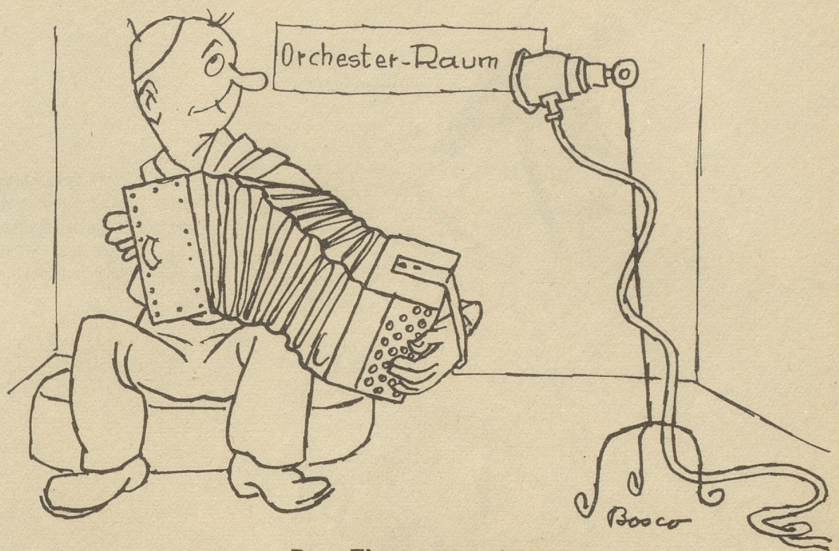 Orchester-Raum
Bosco